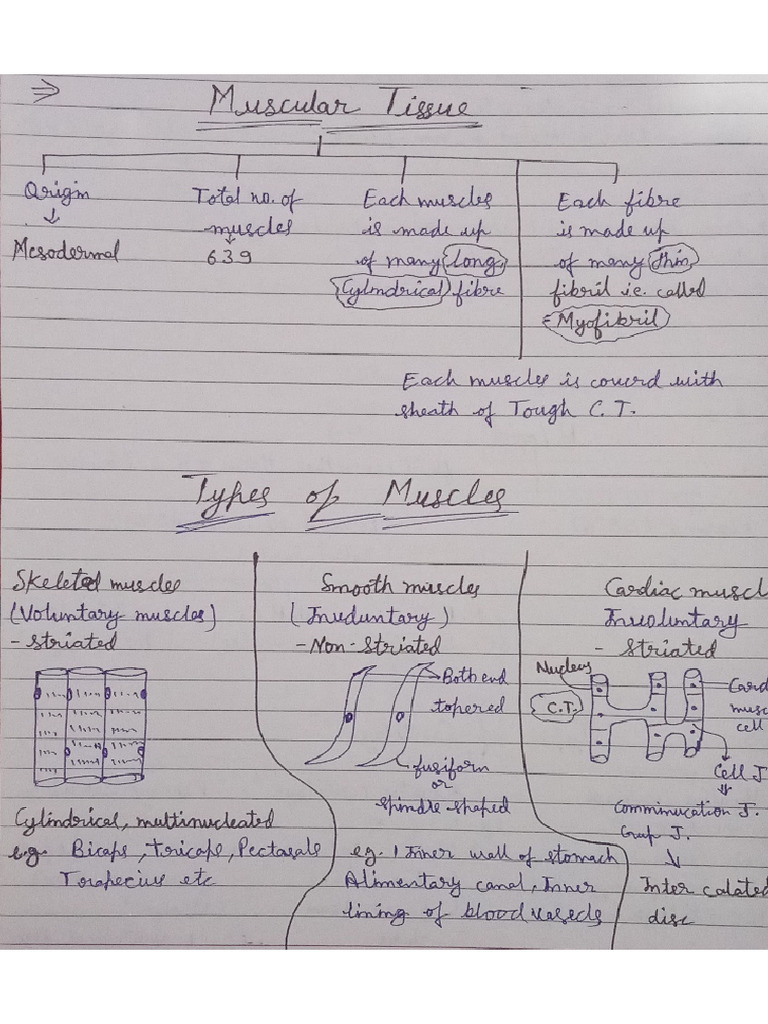 ⇒ Muscular Tissue
Origin
↓
Mesodermal
Total no. of
muscles
↓
639
Each muscles
is made up
of many long,
Cylindrical fibre
Each fibre
is made up
of many thin
fibril i.e. called
Myofibril
Each muscles is coverd with
sheath of Tough C.T.
Types of Muscles
Skeletal muscles
(Voluntary muscles)
- Striated
Cylindrical, multinucleated
e.g. Bicaps, tricaps, Pectasals
Torapecius etc
Smooth muscles
(Involuntary)
- Non-Striated
Both end
tapered
fusiform
or
spindle-shaped
eg. Inner wall of stomach
Alimentary canal, Inner
lining of blood vaseds
Cardiac muscl
Involuntary
- Striated
Nucleus
C.T.
Card
musc
cell
Cell J
⇓
Comminucation J.
Gap J.
↓
Inter calated
disc